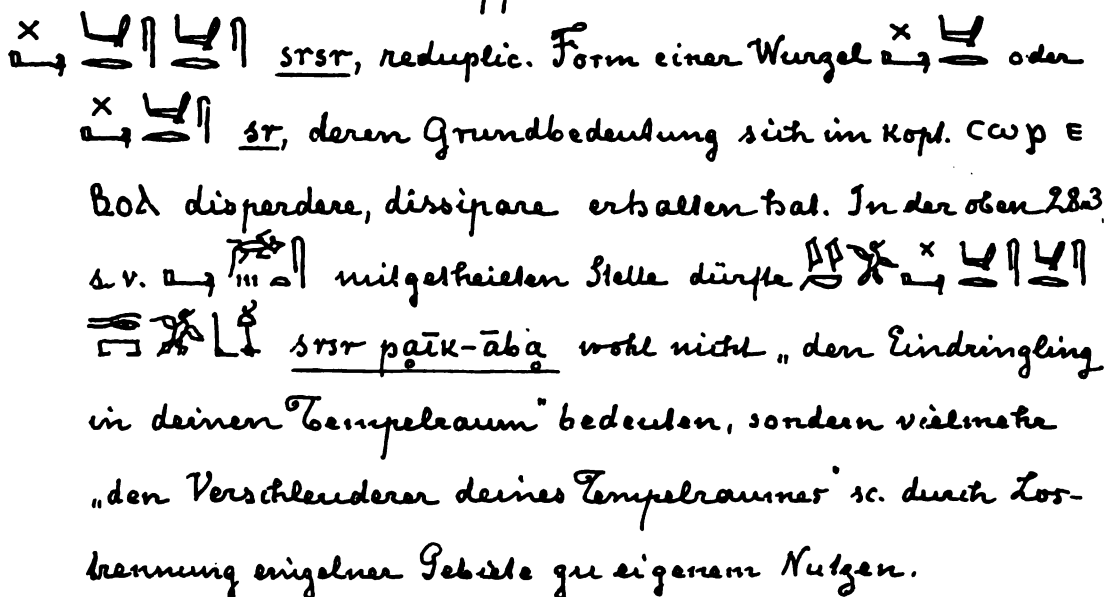 srsr, reduplic. Form einer Wurzel oder
sr, deren Grundbedeutung sich im kopt. ⲥⲱⲣ ⲉ
ⲃⲟⲗ disperdere, dissipare erhalten hat. In der oben
s. v. mitgetheilten Stelle dürfte
srsr paik-āba wohl nicht „den Eindringling
in deinen Tempelraum" bedeuten, sondern vielmehr
„den Verschleuderer deines Tempelraumes" sc. durch Los-
trennung einzelner Gebiete zu eigenem Nutzen.